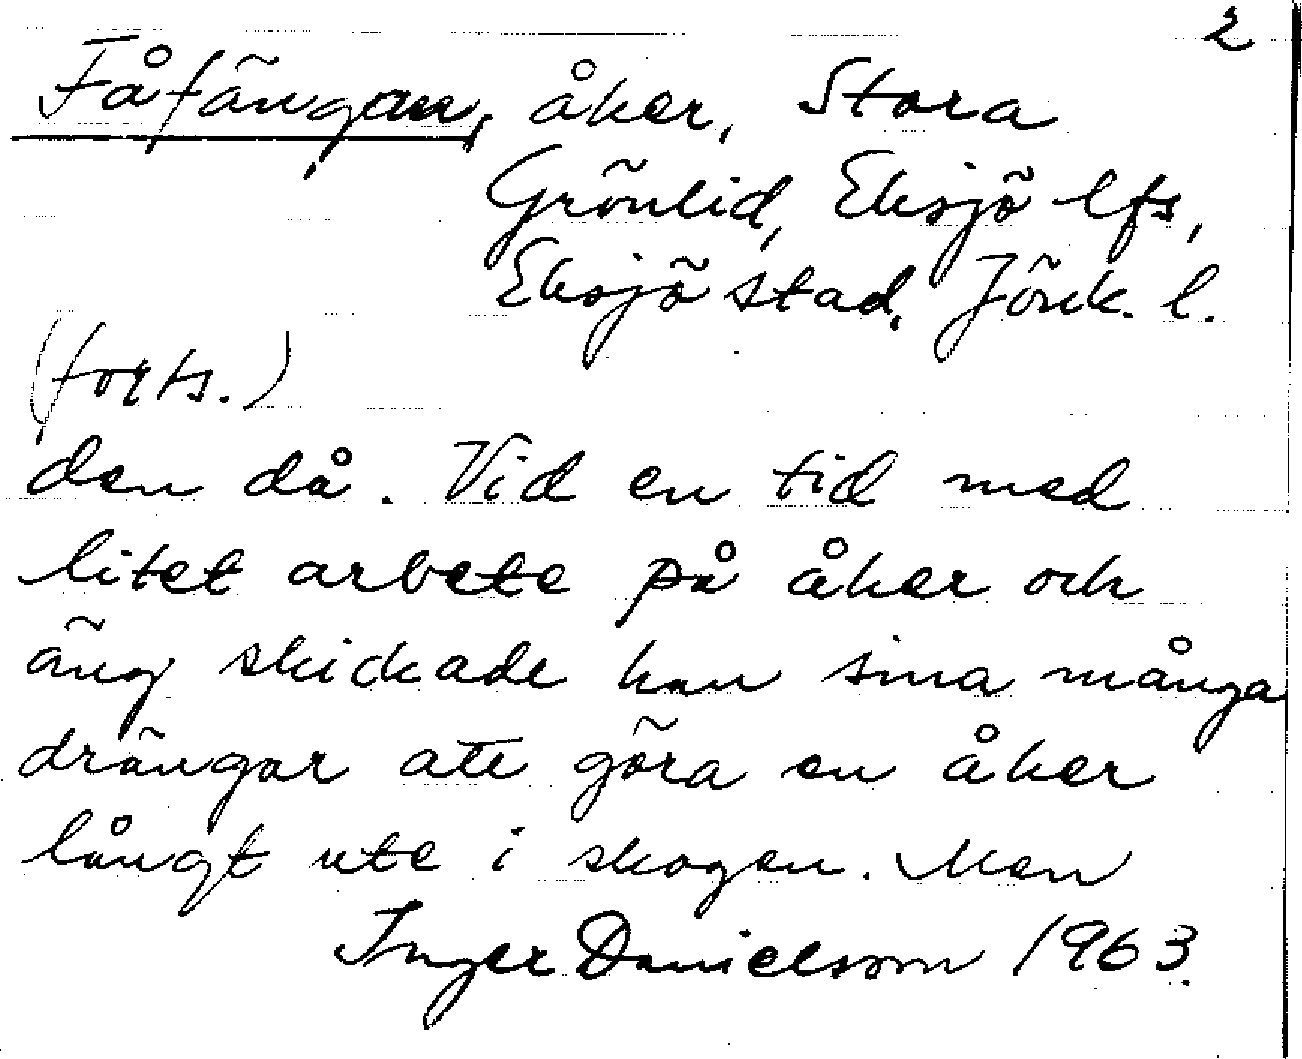 2
Fåfängan, åker, Stora
Grönlid, Eksjö lfs,
Eksjö stad, Jönk. l.
(forts.)
den då. Vid en tid med
litet arbete på åker och
äng skickade han sina många
drängar att göra en åker
långt ute i skogen. Men
Inger Danielsson 1963.